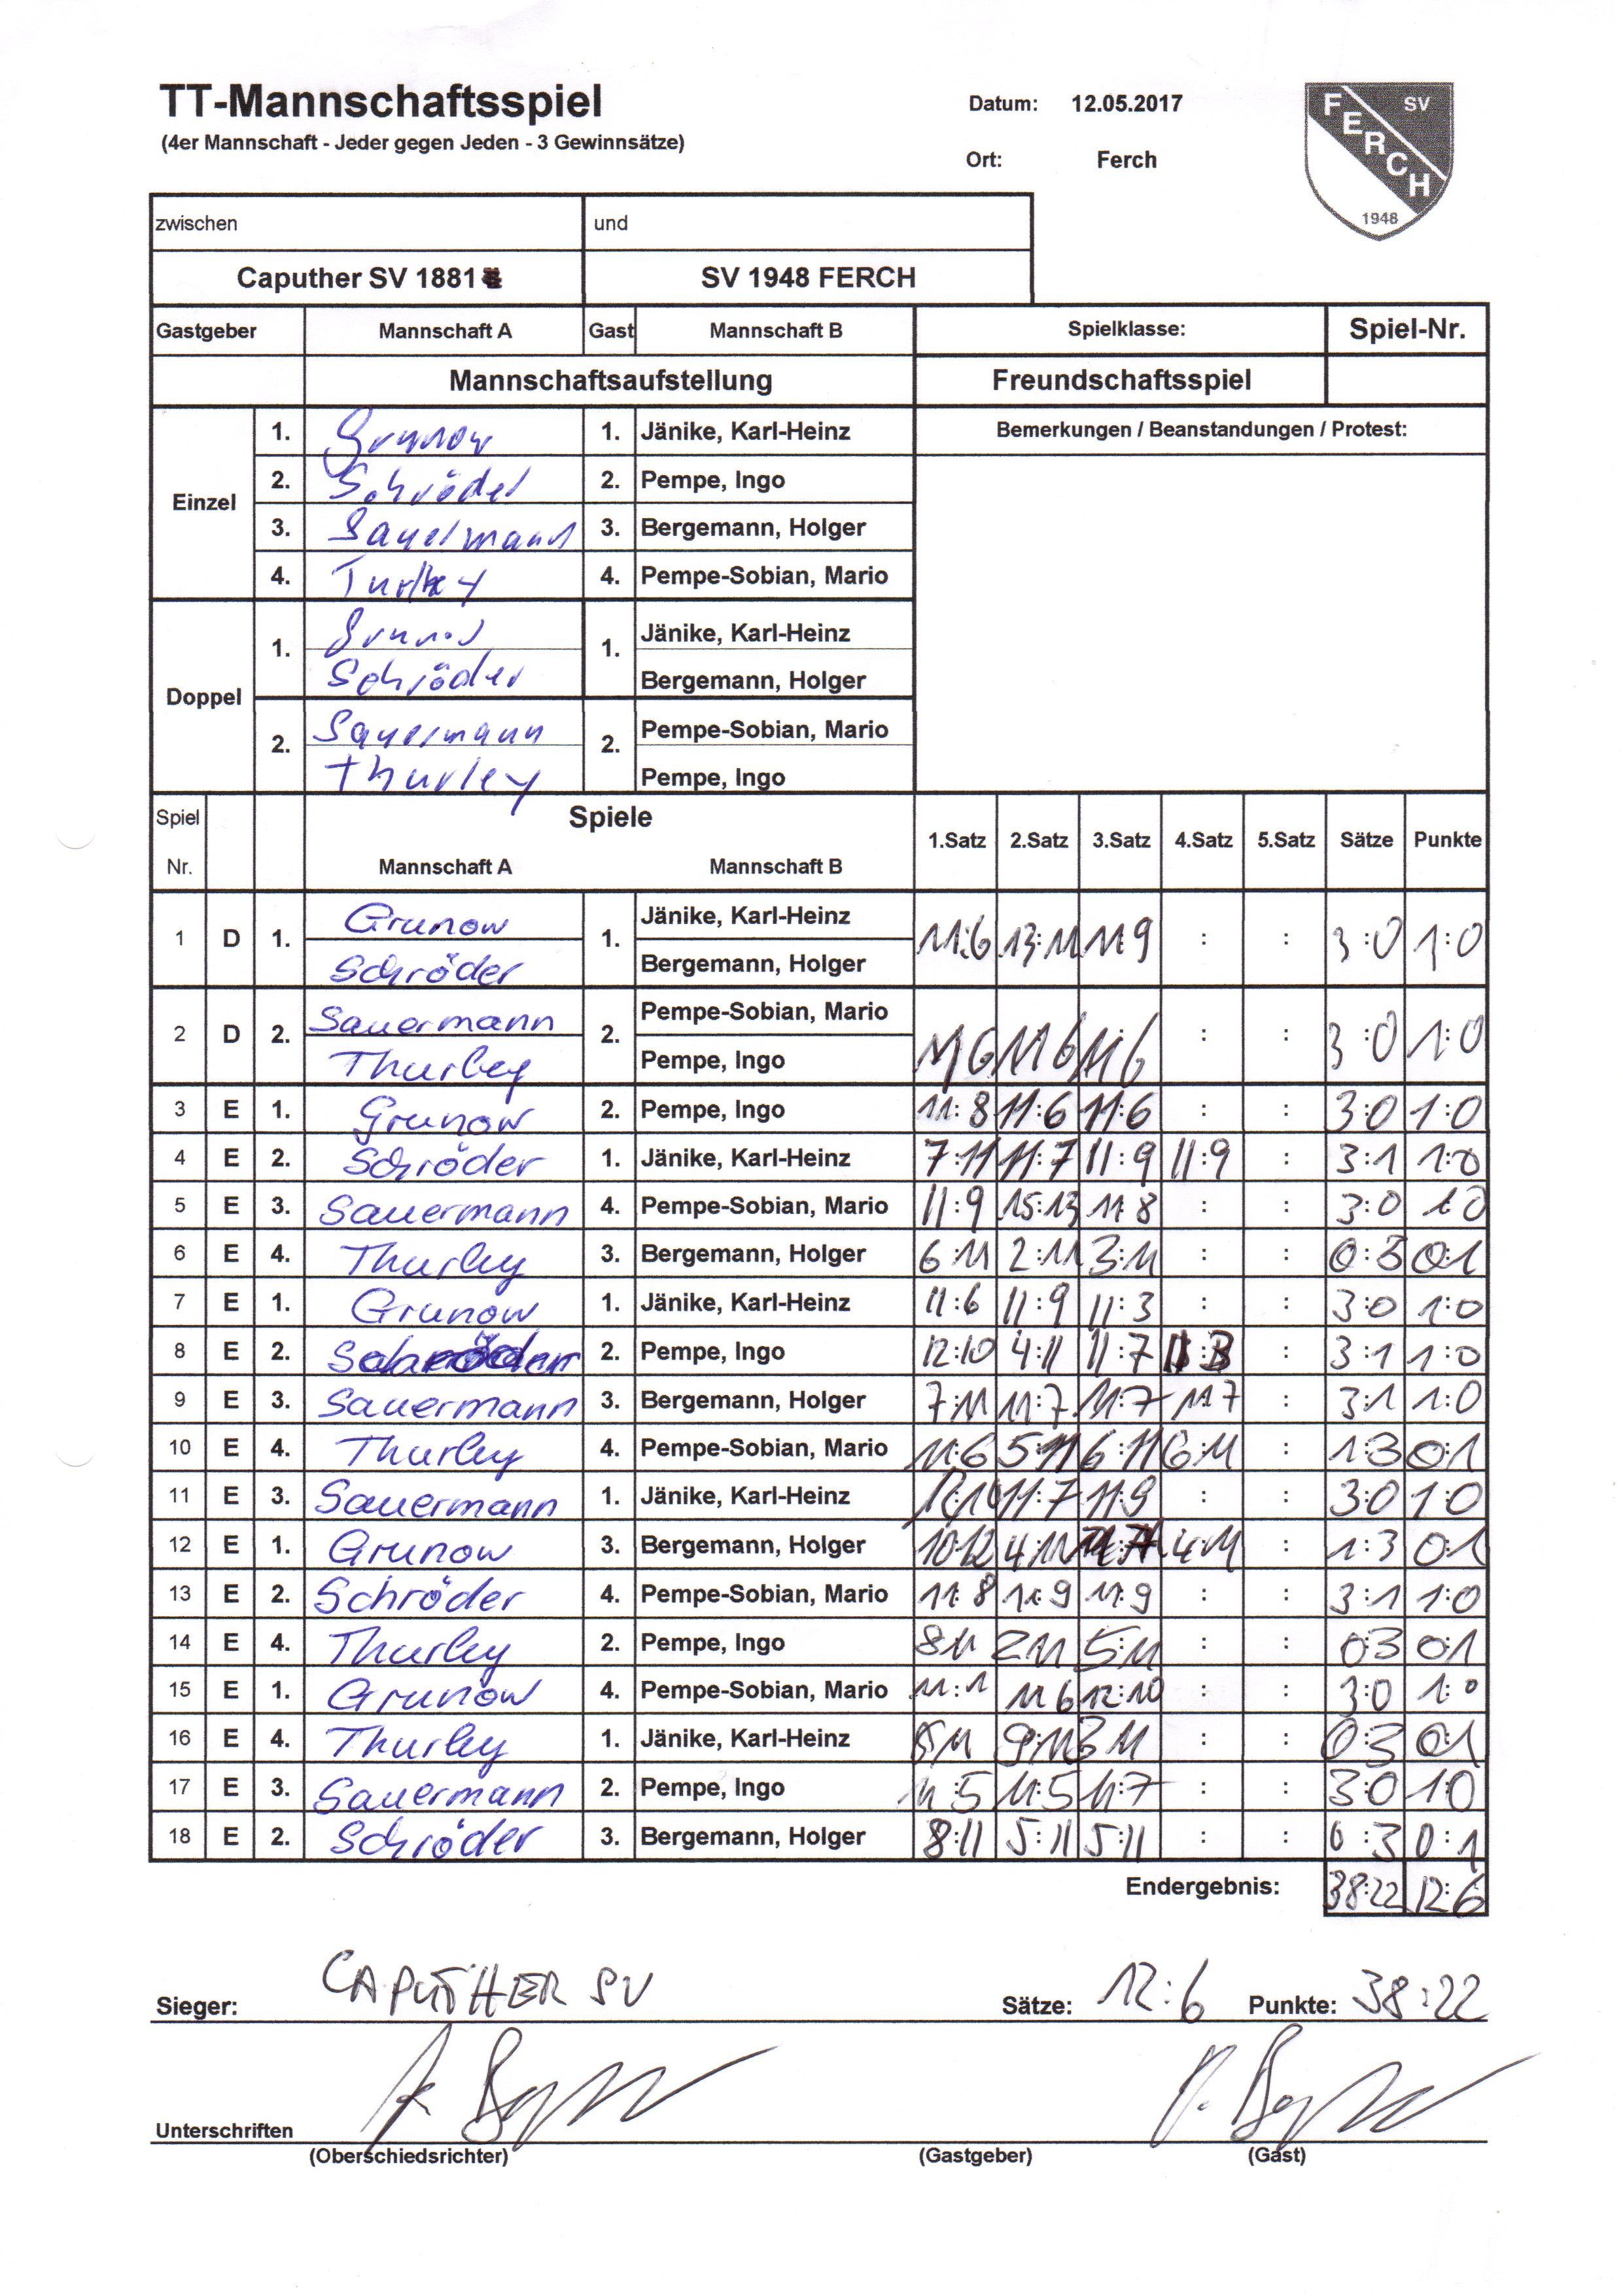 TT-Mannschaftsspiel
(4er Mannschaft - Jeder gegen Jeden - 3 Gewinnsätze)
Datum: 12.05.2017
Ort: Ferch
FERCH SV 1948
zwischen und
Caputher SV 1881 SV 1948 FERCH
Gastgeber Mannschaft A Gast Mannschaft B Spielklasse: Spiel-Nr.
Mannschaftsaufstellung Freundschaftsspiel
Einzel
1. Grunow 1. Jänike, Karl-Heinz Bemerkungen / Beanstandungen / Protest:
2. Schröder 2. Pempe, Ingo
3. Sauermann 3. Bergemann, Holger
4. 4. Pempe-Sobian, Mario
Doppel
1. Schröder 1. Jänike, Karl-Heinz
Bergemann, Holger
2. Sauermann 2. Pempe-Sobian, Mario
Thurley Pempe, Ingo
Spiel Nr. Spiele
Mannschaft A Mannschaft B 1.Satz 2.Satz 3.Satz 4.Satz 5.Satz Sätze Punkte
1 D 1. Grunow 1. Jänike, Karl-Heinz 11:6 13:11 11:9 : : 3:0 1:0
Schröder Bergemann, Holger
2 D 2. Sauermann 2. Pempe-Sobian, Mario 11 6 11 6 11:6 : : 3:0 1:0
Thurley Pempe, Ingo
3 E 1. Grunow 2. Pempe, Ingo 11:8 11:6 11:6 : : 3:0 1:0
4 E 2. Schröder 1. Jänike, Karl-Heinz 7:11 11:7 11:9 11:9 : 3:1 1:0
5 E 3. Sauermann 4. Pempe-Sobian, Mario 11:9 15:13 11:8 : : 3:0 1:0
6 E 4. Thurley 3. Bergemann, Holger 6 11 2:11 3:11 : : 0:3 0:1
7 E 1. Grunow 1. Jänike, Karl-Heinz 11:6 11:9 11:3 : : 3:0 1:0
8 E 2. Schröder 2. Pempe, Ingo 12:10 4:11 11:7 : 3:1 1:0
9 E 3. Sauermann 3. Bergemann, Holger 7:11 11:7 11:7 11:7 : 3:1 1:0
10 E 4. Thurley 4. Pempe-Sobian, Mario 11:6 5:11 6:11 6:11 : 1:3 0:1
11 E 3. Sauermann 1. Jänike, Karl-Heinz 11:7 11:9 : : 3:0 1:0
12 E 1. Grunow 3. Bergemann, Holger 10:12 4:11 4:11 : 1:3 0:1
13 E 2. Schröder 4. Pempe-Sobian, Mario 11:8 11:9 11:9 : : 3:1 1:0
14 E 4. Thurley 2. Pempe, Ingo 8:11 2:11 5:11 : : 0:3 0:1
15 E 1. Grunow 4. Pempe-Sobian, Mario 11:1 11 6 12:10 : : 3:0 1:0
16 E 4. Thurley 1. Jänike, Karl-Heinz 9:11 3:11 : : 0:3 0:1
17 E 3. Sauermann 2. Pempe, Ingo 11:5 11:5 11:7 : : 3:0 1:0
18 E 2. Schröder 3. Bergemann, Holger 8:11 5:11 5:11 : : 0:3 0:1
Endergebnis: 38:22 12:6
Sieger: CAPUTHER SV Sätze: 12:6 Punkte: 38:22
Unterschriften
(Oberschiedsrichter) (Gastgeber) (Gast)